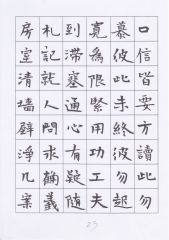 口信皆要方讀此勿
慕彼此未終彼勿起
寬為限緊用功工夫
到滯塞通心有疑隨
札記就人問求確義
房室清墙壁淨几案
23